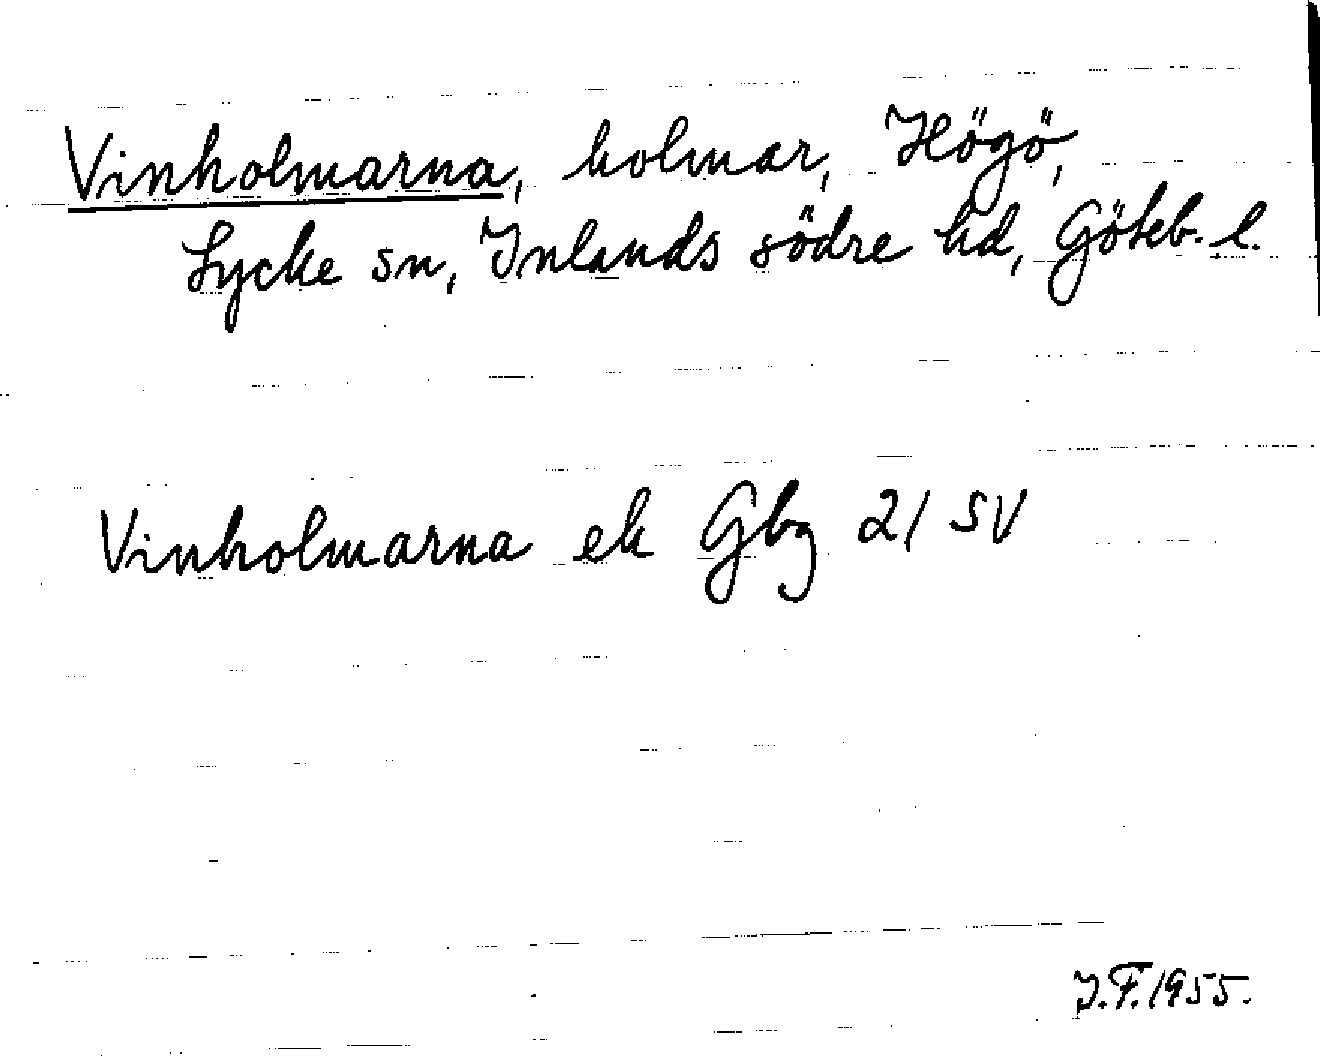 Vinholmarna, holmar, Högö,
Lycke sn, Inlands södre hd, Göteb. l.
Vinholmarna ek Gbg 21 SV
J.F. 1955.